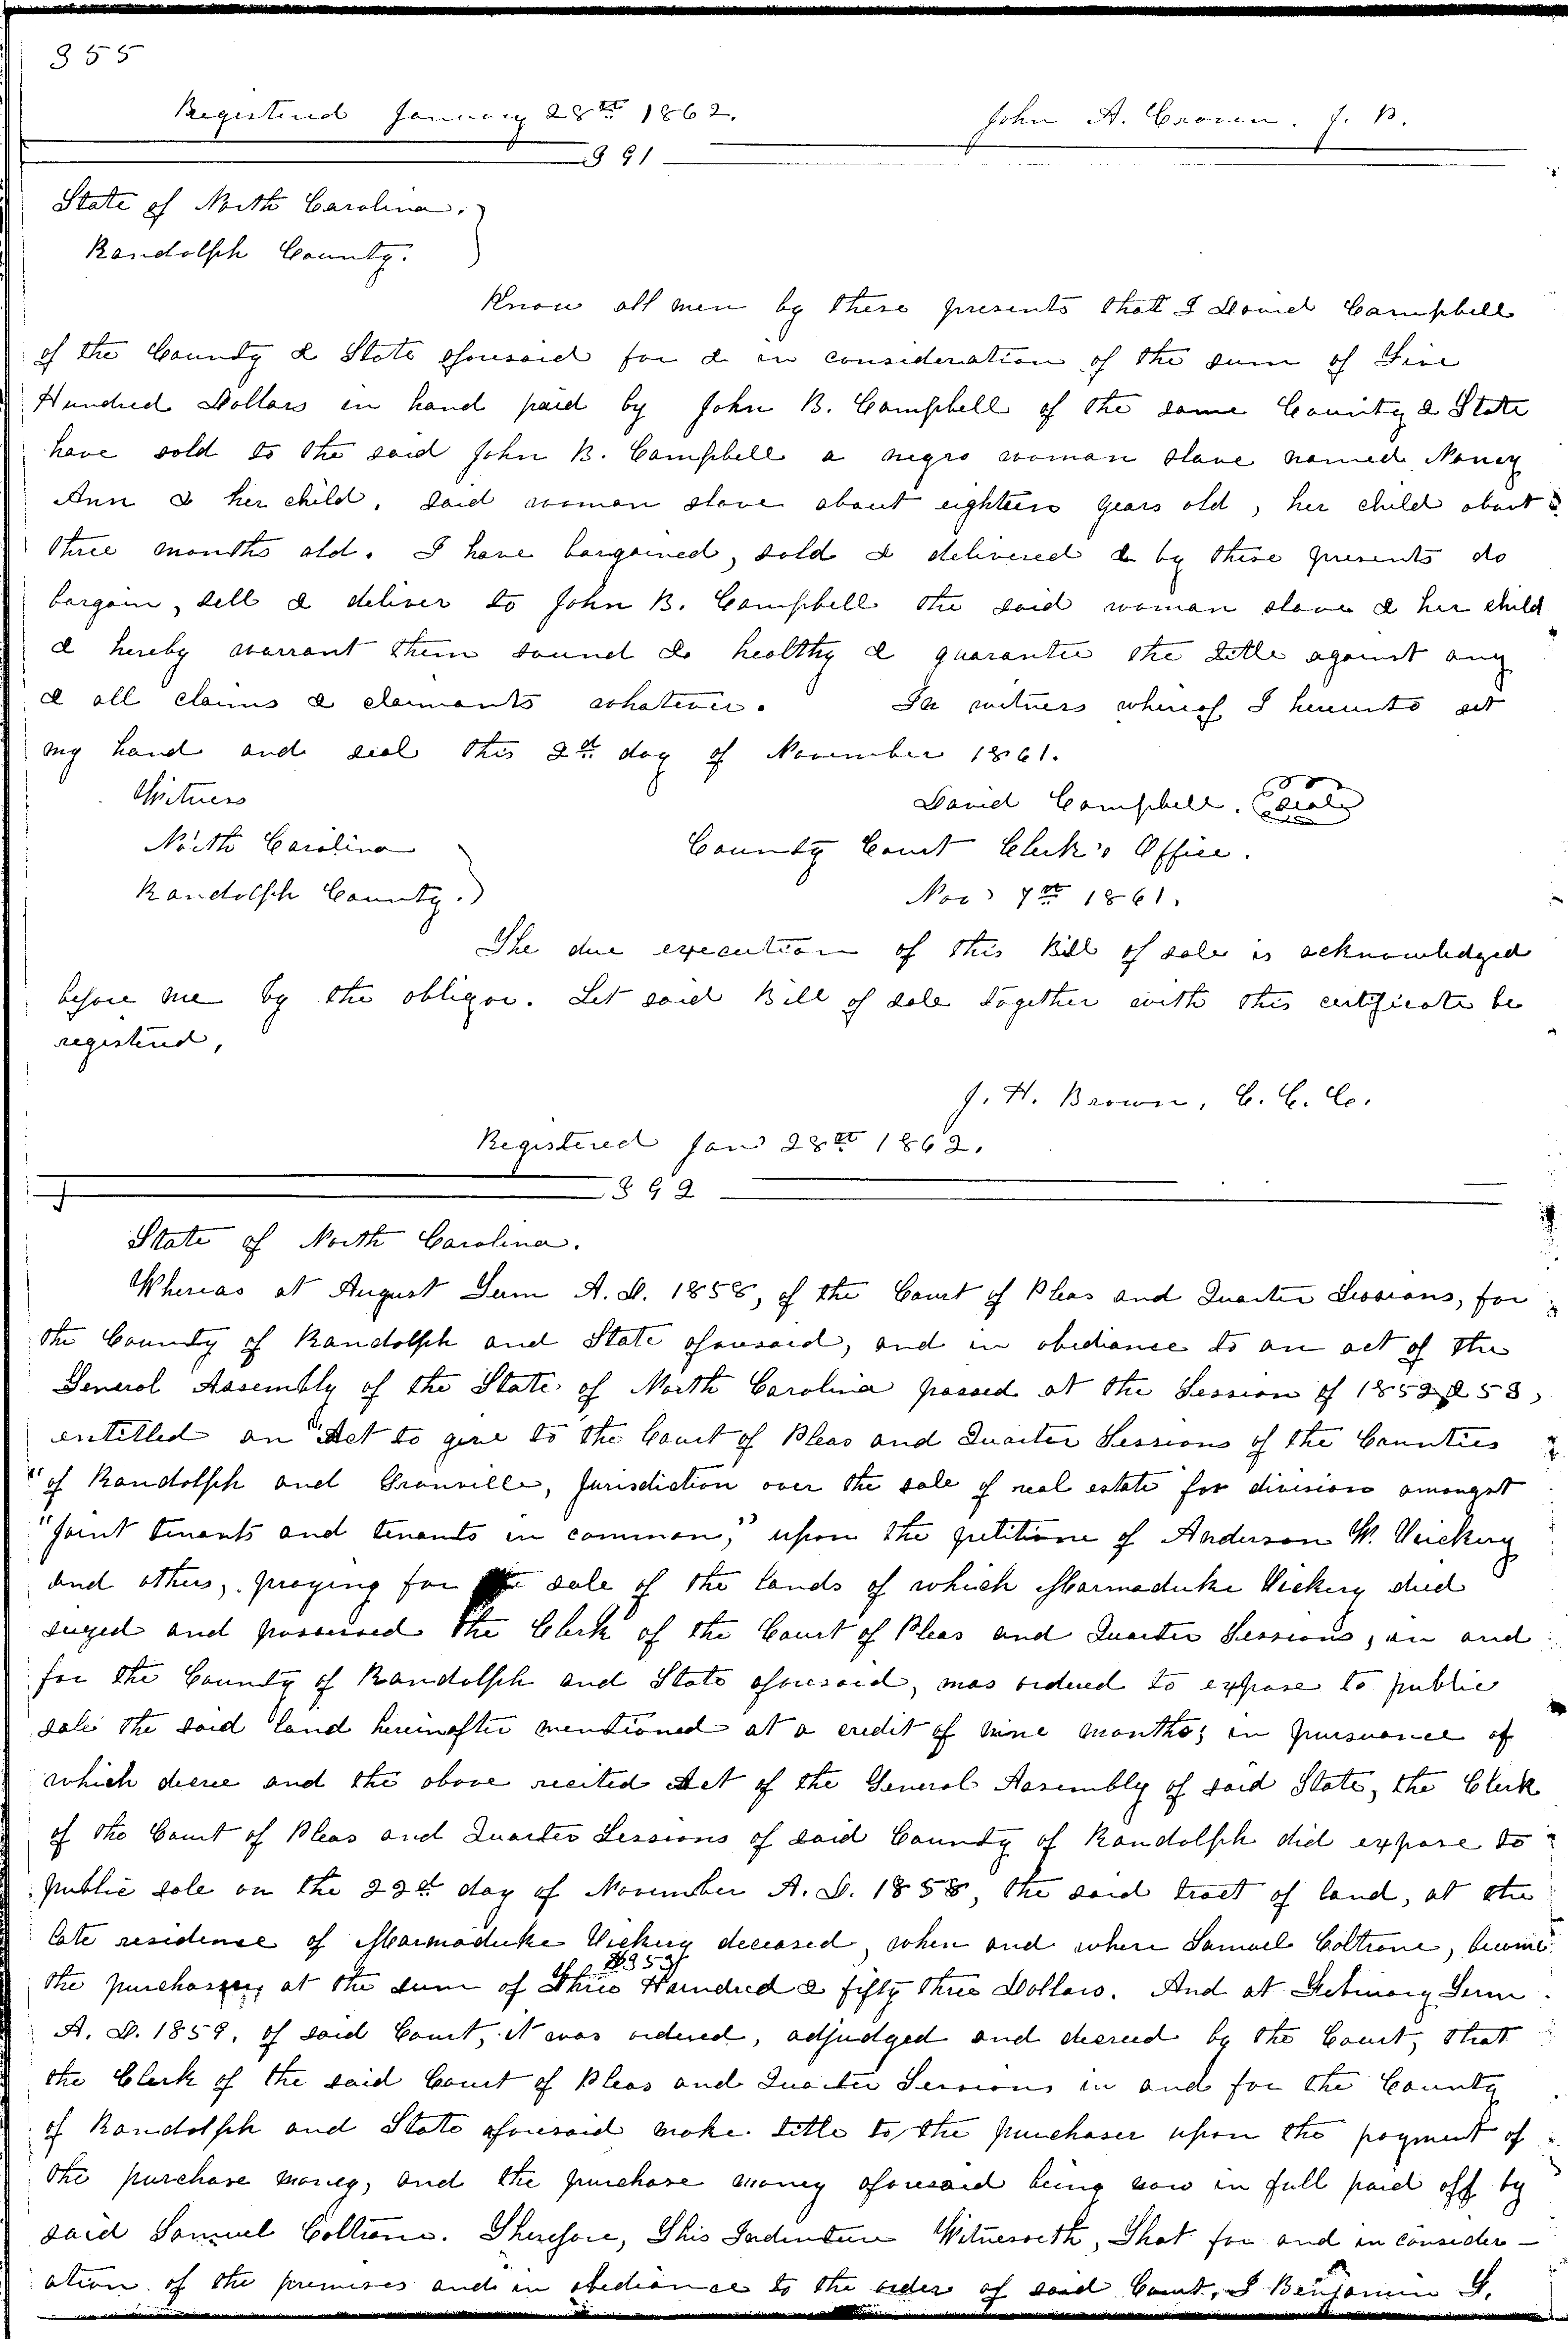 355
Registered January 28th 1862. John A. Craven. J. P.
391
State of North Carolina.
Randolph County.
Know all men by these presents that I David Campbell
of the County & State aforesaid for & in consideration of the sum of Five
Hundred Dollars in hand paid by John B. Campbell of the same County & State
have sold to the said John B. Campbell a negro woman slave named Nancy
Ann & her child, said woman slave about eighteen years old, her child about
three months old. I have bargained, sold & delivered & by these presents do
bargain, sell & deliver to John B. Campbell the said woman slave & her child
& hereby warrant them sound & healthy & guarantee the title against any
& all claims & claimants whatever. In witness whereof I hereunto set
my hand and seal this 2d day of November 1861.
Witness David Campbell. (seal)
North Carolina County Court Clerk's Office.
Randolph County. Nov 7th 1861.
The due execution of this Bill of sale is acknowledged
before me by the obligor. Let said Bill of sale together with this certificate be
registered,
J. H. Brown, C. C. C.
Registered Jan 28th 1862.
392
State of North Carolina.
Whereas at August Term A. D. 1858, of the Court of Pleas and Quarter Sessions, for
the County of Randolph and State aforesaid, and in obediance to an act of the
General Assembly of the State of North Carolina passed at the Session of 1852 & 53,
entitled an "Act to give to the Court of Pleas and Quarter Sessions of the Counties
"of Randolph and Granville, Jurisdiction over the sale of real estate for division amongst
"joint tenants and tenants in common," upon the petition of Anderson W. Vickery
and others, praying for the sale of the lands of which Marmaduke Vickery died
siezed and possessed the Clerk of the Court of Pleas and Quarter Sessions, in and
for the County of Randolph and State aforesaid, was ordered to expose to public
sale the said land hereinafter mentioned at a credit of nine months; in pursuance of
which decree and the above recited Act of the General Assembly of said State, the Clerk
of the Court of Pleas and Quarter Sessions of said County of Randolph did expose to
public sale on the 22d day of November A. D. 1858, the said tract of land, at the
late residence of Marmaduke Vickery deceased, when and where Samuel Coltrane, became
$353
the purchaser, at the sum of Three Hundred & fifty three Dollars. And at February Term
A. D. 1859, of said Court, it was ordered, adjudged and decreed by the Court, that
the Clerk of the said Court of Pleas and Quarter Sessions in and for the County
of Randolph and State aforesaid make title to the purchaser upon the payment of
the purchase money, and the purchase money aforesaid being now in full paid off by
said Samuel Coltrane. Therefore, This Indenture Witnesseth, That for and in consider-
ation of the premises and in obediance to the order of said Court, I Benjamin F.